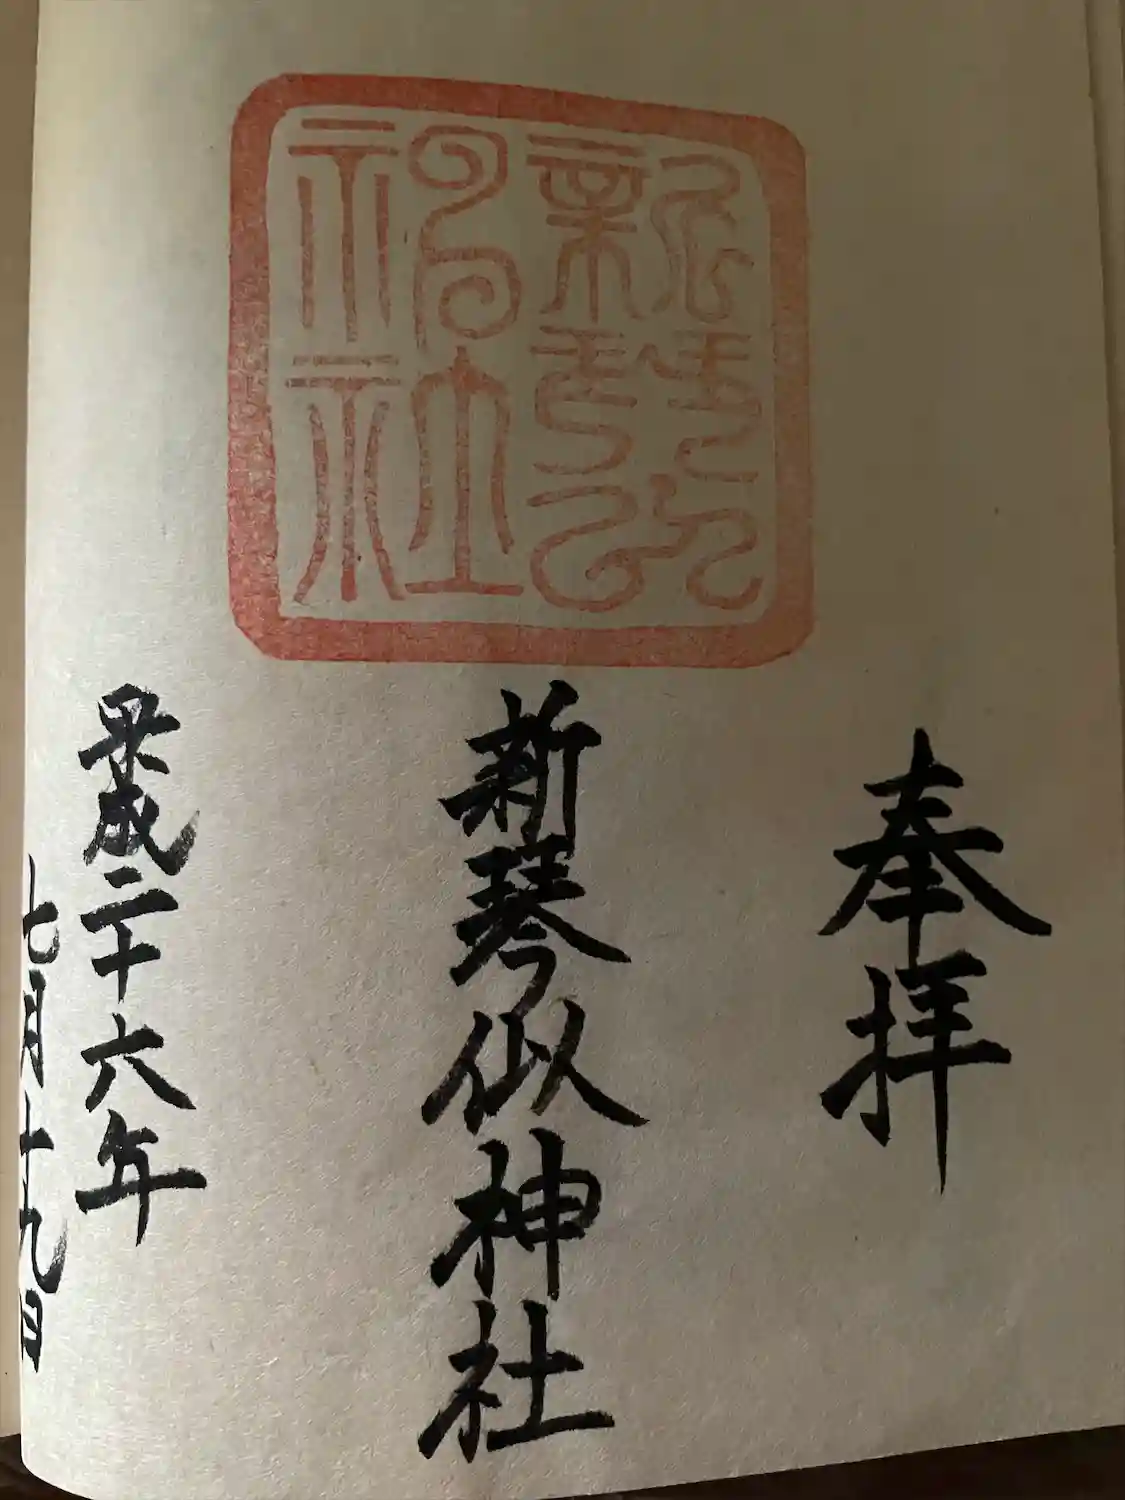 奉拝
新琴似神社
平成二十六年
七月十九日
新琴似
神社